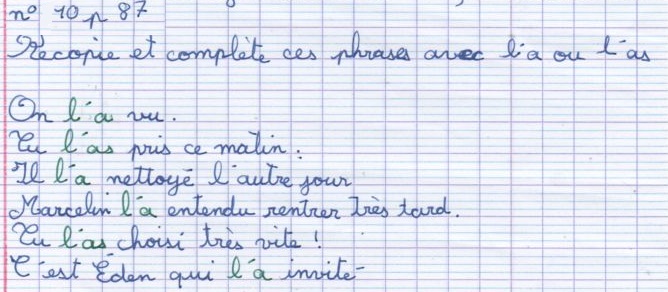 n° 10 p 87
Recopie et complète ces phrases avec l'a ou l'as
On l'a vu.
Tu l'as pris ce matin.
Il l'a nettoyé l'autre jour
Marcelin l'a entendu rentrer très tard.
Tu l'as choisi très vite !
C'est Éden qui l'a invité